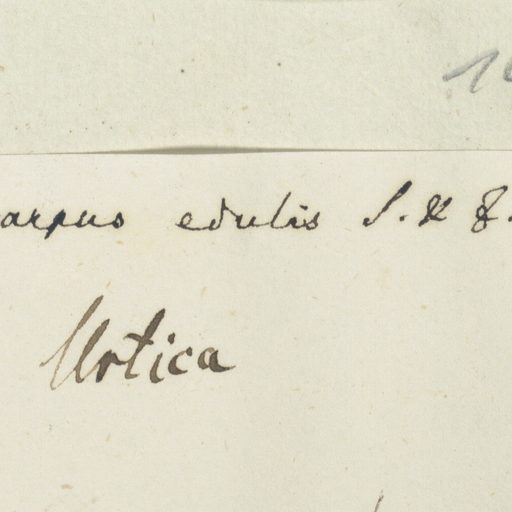 arpus edulis S. & Z.
Urtica